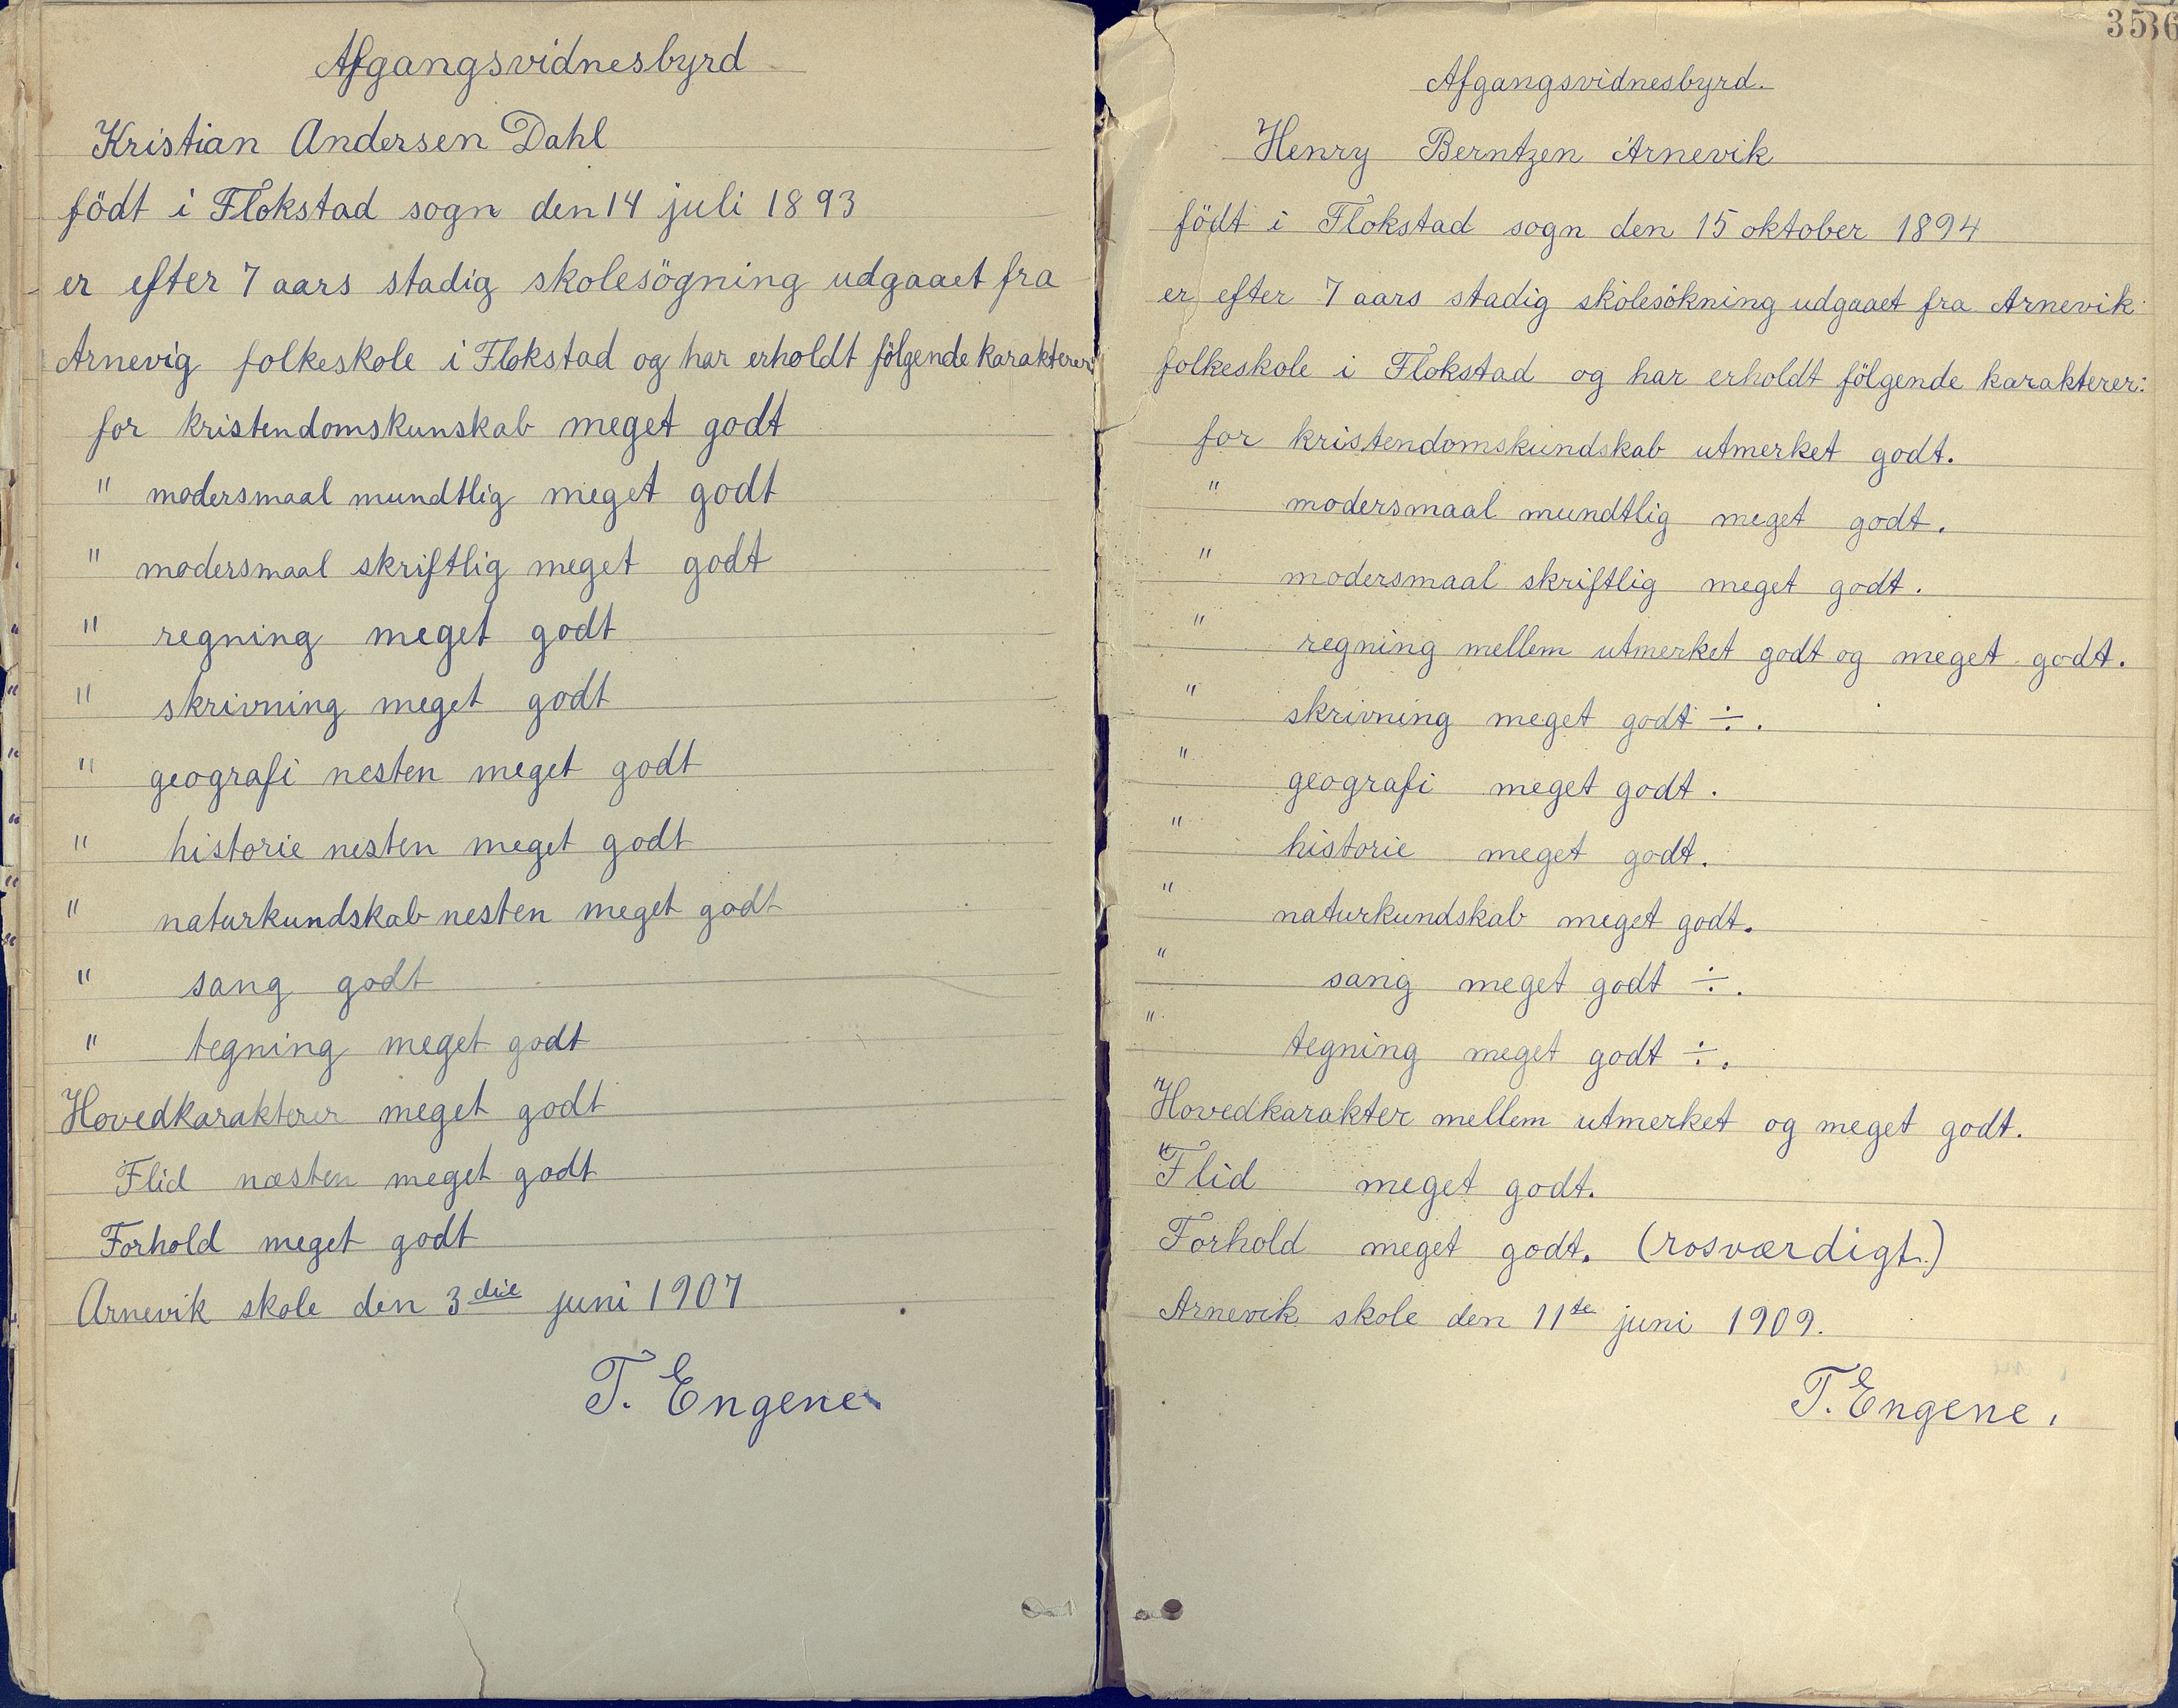 Afgangsvidnesbyrd
Kristian Andersen Dahl
födt i Flokstad sogn den 14 juli 1893
er efter 7 aars stadig skolesögning udgaaet fra
Arnevig folkeskole i Flokstad og har erholdt fölgende karakterer
for kristendomskunskab meget godt
" modersmaal mundtlig meget godt
" modersmaal skriftlig meget godt
" regning meget godt
" skrivning meget godt
" geografi nesten meget godt
" historie nesten meget godt
" naturkundskab nesten meget godt
" sang godt
" tegning meget godt
Hovedkarakterer meget godt
Flid næsten meget godt
Forhold meget godt
Arnevik skole den 3die juni 1907
T. Engene
36
Afgangsvidnesbyrd.
Henry Berntzen Arnevik
födt i Flokstad sogn den 15 oktober 1894
er efter 7 aars stadig skolesökning udgaaet fra Arnevik
folkeskole i Flokstad og har erholdt fölgende karakterer:
for kristendomskundskab utmerket godt.
" modersmaal mundtlig meget godt.
" modersmaal skriftlig meget godt.
" regning mellem utmerket godt og meget godt.
" skrivning meget godt ÷.
" geografi meget godt.
" historie meget godt.
" naturkundskab meget godt.
" sang meget godt ÷.
" tegning meget godt ÷.
Hovedkarakter mellem utmerket og meget godt.
Flid meget godt.
Forhold meget godt. (rosværdigt.)
Arnevik skole den 11te juni 1909.
T. Engene.